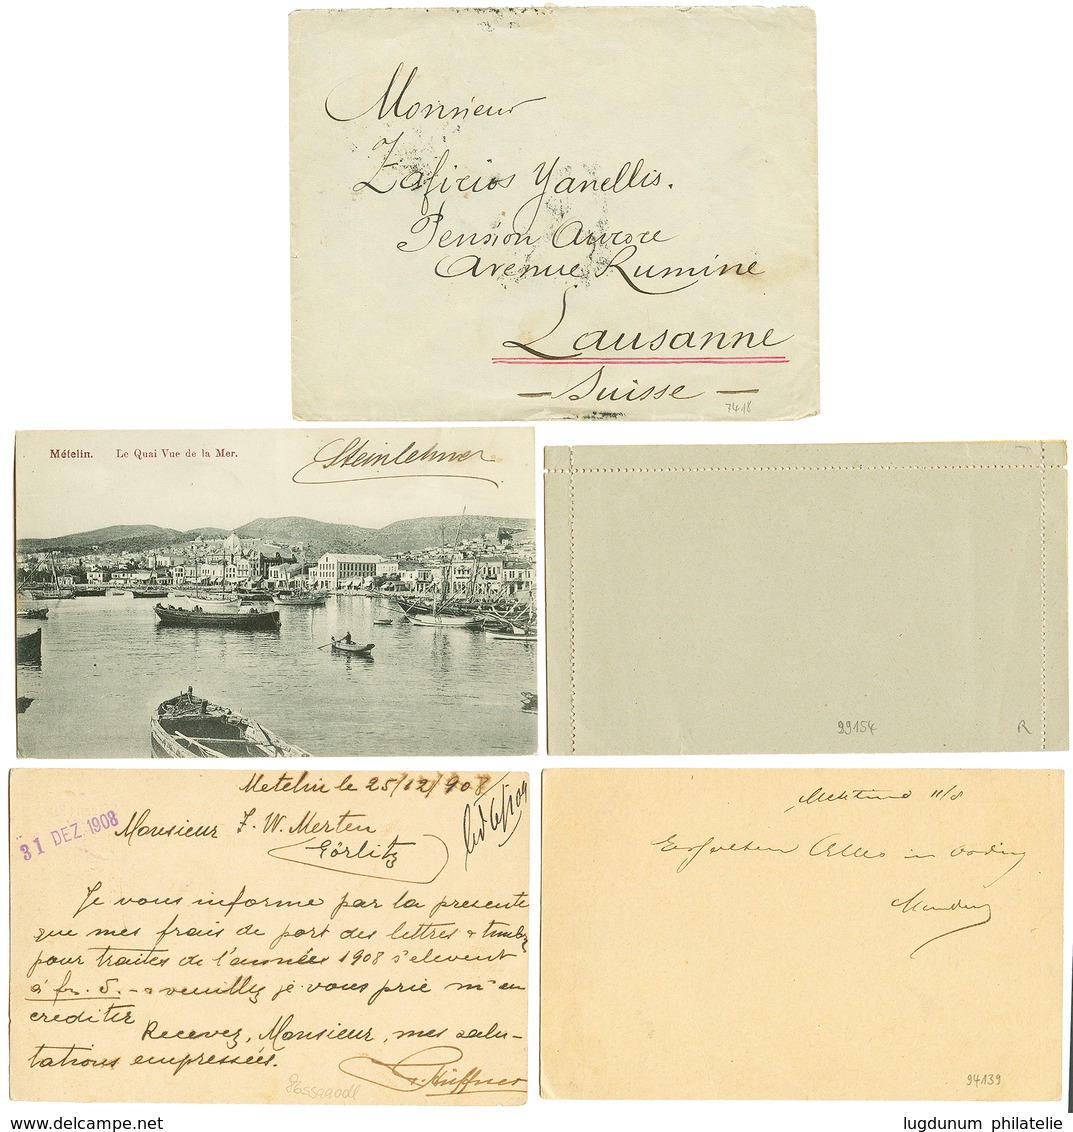 Monsieur
Zafirios Yanellis.
Pension Aurore
Avenue Rumine
Lausanne
— Suisse —
7418
Métélin. Le Quai Vue de la Mer.
Steinlehner
99154 R
Metelin le 25/12/908
31 DEZ 1908
Monsieur F. W. Merten
Görlitz
Je vous informe par la presente
que mes frais de port des lettres &
pour traites de l'années 1908 s'elevent
à fr. 5.— veuillez je vous prie m'en
crediter
Recevez, Monsieur, mes salu-
tations empressées.
11/8
in
94139
lugdunum philatelie